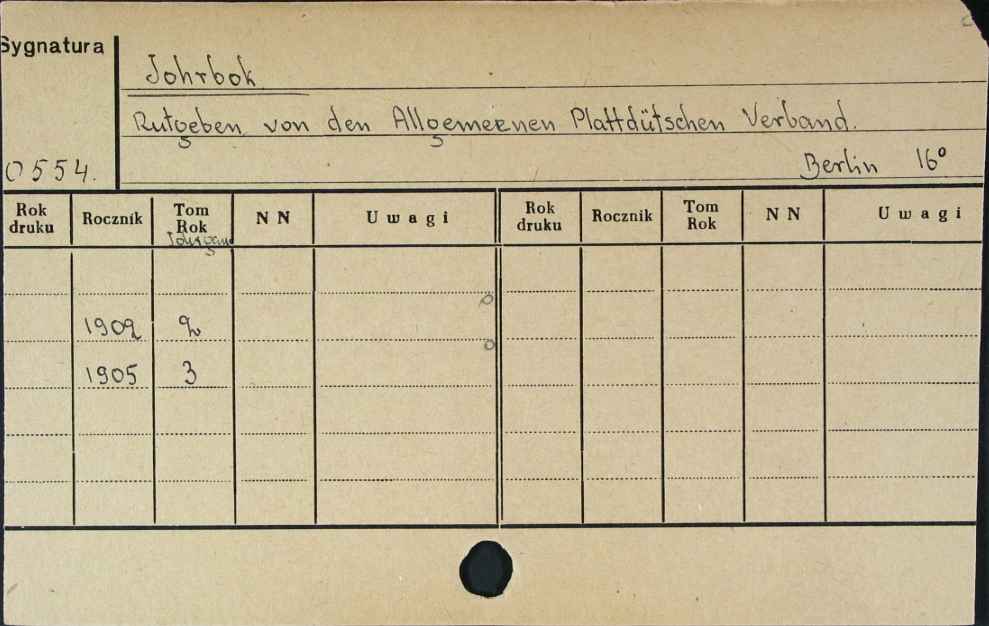 Sygnatura
Johrbok
Rutgeben von den Allgemeenen Plattdütschen Verband.
0554.
Berlin 16°
Rok druku Rocznik Tom Rok N N Uwagi Rok druku Rocznik Tom Rok N N Uwagi
1902 2
1905 3